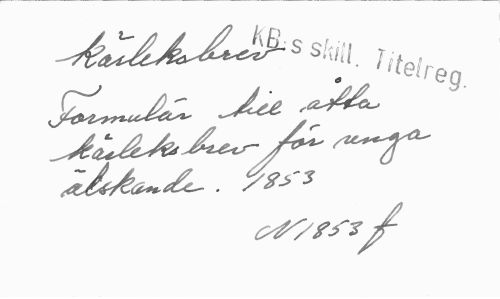 Kärleksbrev
KB:s skill. Titelreg.
Formulär till åtta
kärleksbrev för unga
älskande. 1853
N 1853 f